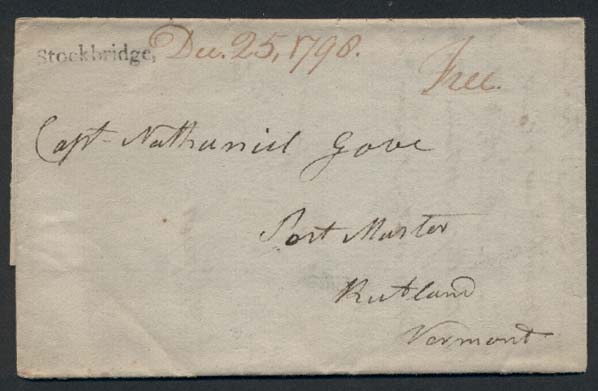 Stockbridge, Dec. 25, 1798.
Free.
Capt Nathaniel Gove
Post Master
Rutland
Vermont